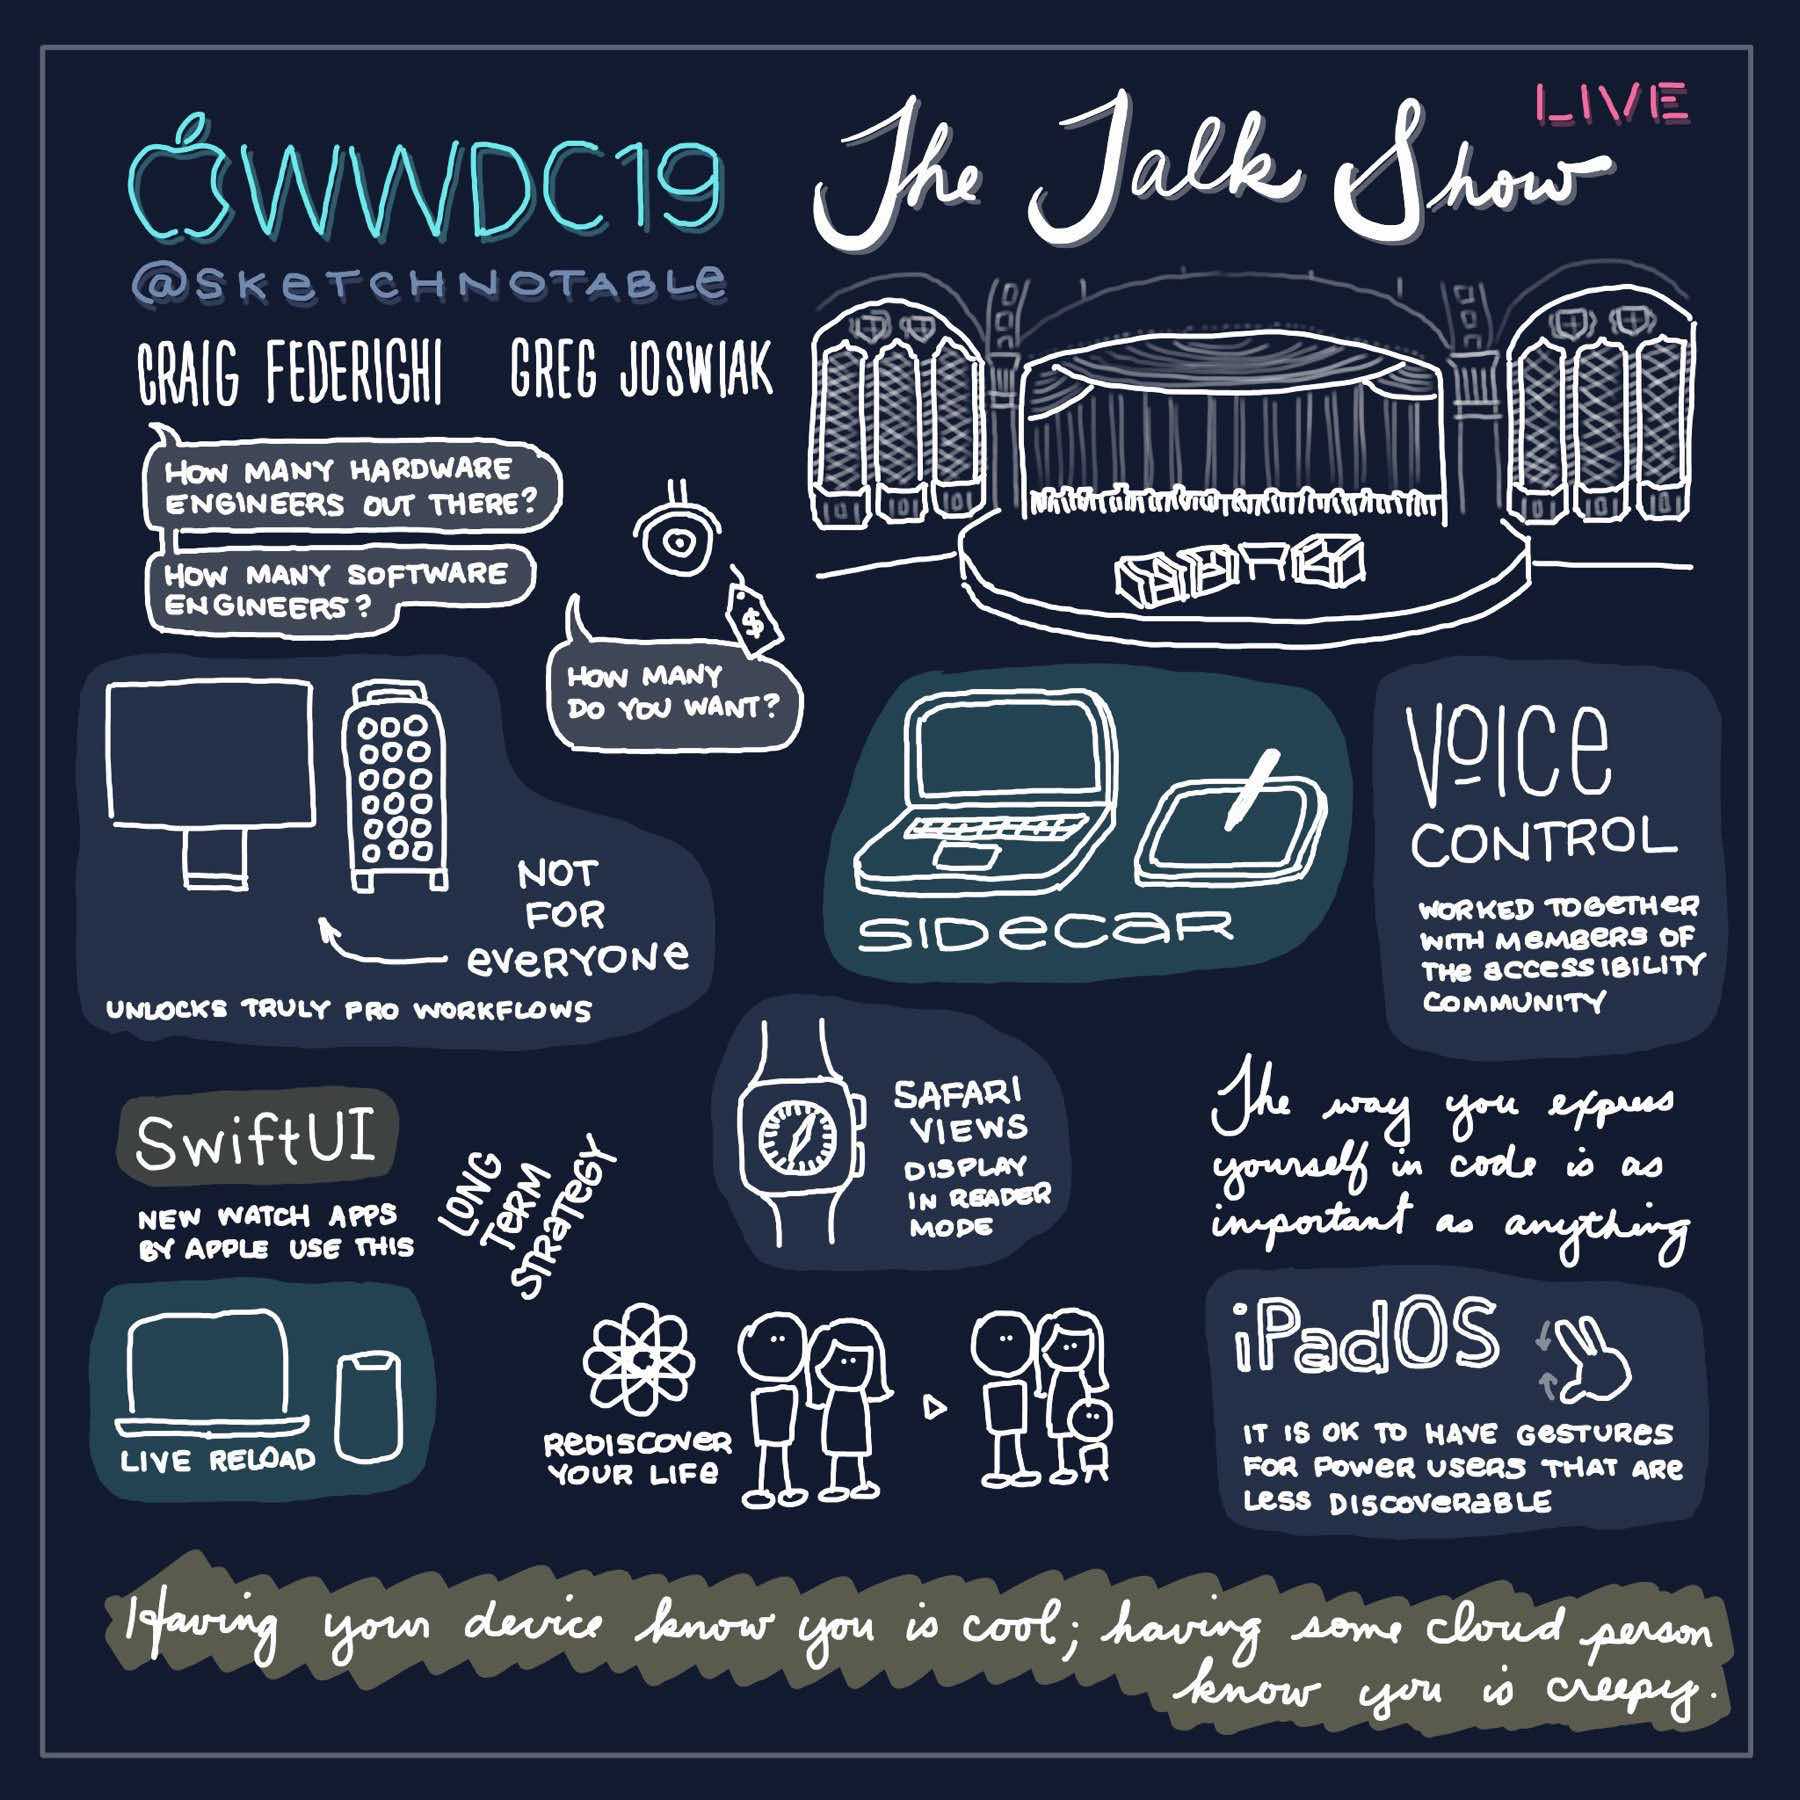 WWDC19
@SKETCHNOTABLE
The Talk Show
LIVE
CRAIG FEDERIGHI
GREG JOSWIAK
HOW MANY HARDWARE
ENGINEERS OUT THERE?
HOW MANY SOFTWARE
ENGINEERS?
$
HOW MANY
DO YOU WANT?
NOT
FOR
EVERYONE
UNLOCKS TRULY PRO WORKFLOWS
SIDECAR
VOICE
CONTROL
WORKED TOGETHER
WITH MEMBERS OF
THE ACCESSIBILITY
COMMUNITY
SwiftUI
NEW WATCH APPS
BY APPLE USE THIS
LONG
TERM
STRATEGY
SAFARI
VIEWS
DISPLAY
IN READER
MODE
The way you express
yourself in code is as
important as anything
LIVE RELOAD
REDISCOVER
YOUR LIFE
iPadOS
IT IS OK TO HAVE GESTURES
FOR POWER USERS THAT ARE
LESS DISCOVERABLE
Having your device know you is cool; having some cloud person
know you is creepy.